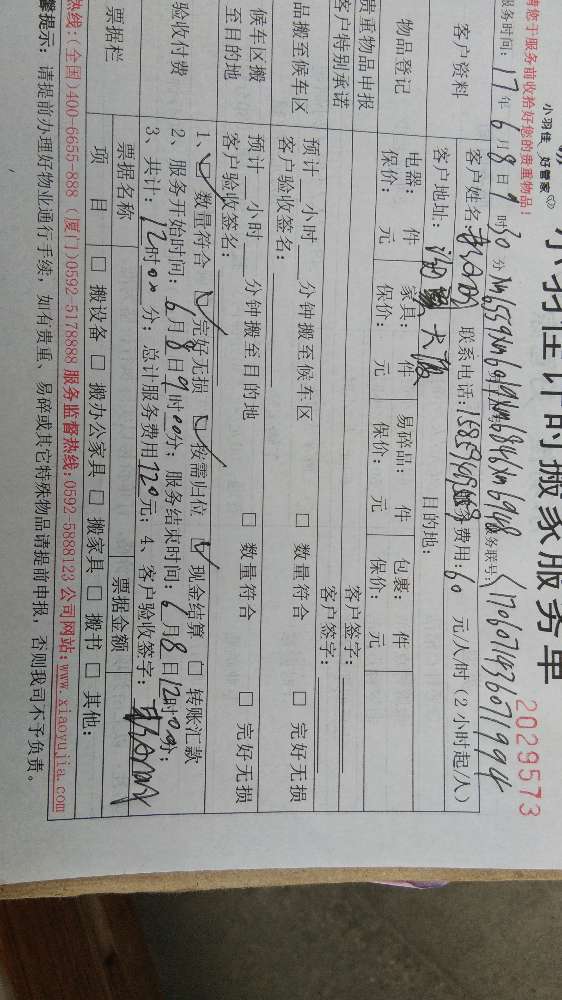 小羽佳 好管家
小羽佳计时搬家服务单
2029573
请您于服务前收拾好您的贵重物品!
服务时间: 17年 6月 8日 9时 30分
客户资料
客户姓名: 联系电话: 服务费用: 60 元/人/时 (2小时起/人)
客户地址: 目的地:
物品登记
电器: 件 家具: 件 易碎品: 件 包裹: 件
保价: 元 保价: 元 保价: 元 保价: 元
贵重物品申报 客户签字:
客户特别承诺 客户签字:
品搬至候车区 预计 小时 分钟搬至候车区 □ 数量符合 □ 完好无损
客户验收签名:
候车区搬至目的地 预计 小时 分钟搬至目的地 □ 数量符合 □ 完好无损
客户验收签名:
验收付费
1、 数量符合 完好无损 按需归位 现金结算 □ 转账汇款
2、服务开始时间: 6月 8日 9时 00分; 服务结束时间: 6月 8日 12时 00分;
3、共计: 12时 00分; 总计服务费用 120 元; 4、客户验收签字:
票据栏
票据名称 票据金额
项目 □ 搬设备 □ 搬办公家具 □ 搬家具 □ 搬书 □ 其他:
热线:(全国)400-6655-888 (厦门)0592-5178888 服务监督热线:0592-5888123 公司网站:www.xiaoyujia.com
馨提示: 请提前办理好物业通行手续, 如有贵重、易碎或其它特殊物品请提前申报, 否则我司不予负责。